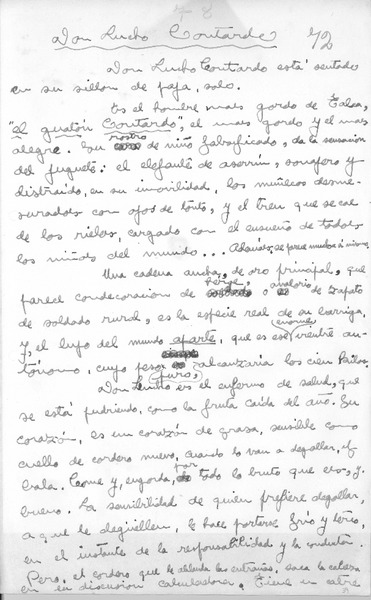 Don Lucho Contardo 1/2
Don Lucho Contardo está sentado
en su sillón de paja, solo.
Es el hombre mas gordo de Talca,
"el guatón Contardo", el mas gordo y el mas
alegre. Su rostro de niño falsificado, da la sensación
del juguete: el elefante de aserrín, sonajero y
distraído, en su inmovilidad, los muñecos desme-
surados con ojos de tonto, y el tren que se cae
de los rieles, cargado con el ensueño de todos
los niños del mundo... Además, se parece mucho a si mismo.
Una cadena ancha, de oro principal, que
parece condecoracion de o de zapato
de soldado rural, es la especie real de su barriga,
y, el lujo del mundo aparte, que es ese enorme vientre au-
tónomo, cuyo peso alcanzaría los cien kilos.
Don Lucho es el enfermo de salud, que
se está pudriendo, como la fruta caída del año. Su
corazón, es un corazón de grasa, sensible como
cuello de cordero nuevo, cuando lo van a degollar, y
bala. Come y, engorda, por todo lo bruto que es, y,
bueno. La sensibilidad de quien prefiere degollar,
a que le degüellen, le hace portarse frío y terco,
en el instante de la responsabilidad y la conducta.
Pero, el cordero que le ablanda las entrañas, saca la cabeza
en su discusion calculadora. Tiene un catre